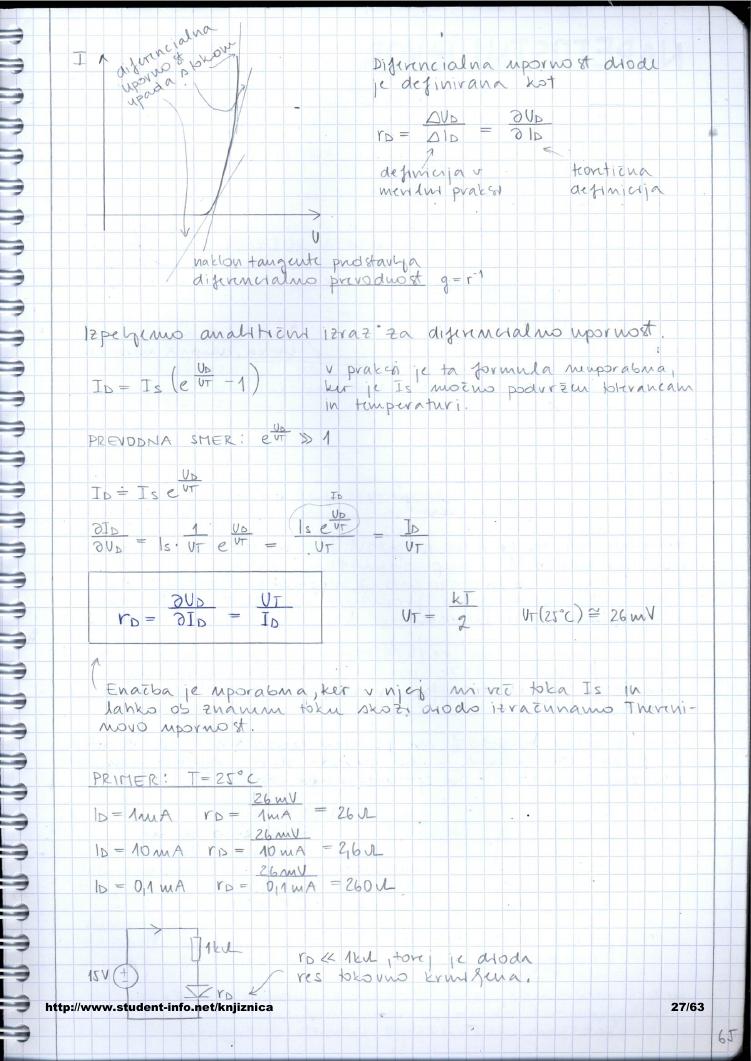 I
diferencialna
upornost
upada s tokom
U
naklon tangente predstavlja
diferencialno prevodnost g = r⁻¹
Diferencialna upornost diode
je definirana kot
r_D = ΔU_D / ΔI_D = ∂U_D / ∂I_D
definicija v
merilni praksi
teoretična
definicija
Izpeljemo analitični izraz za diferencialno upornost.
I_D = I_S (e^(U_D/U_T) - 1)
v praksi je ta formula neuporabna,
ker je I_S močno podvržen tolerancam
in temperaturi.
PREVODNA SMER: e^(U_D/U_T) ≫ 1
I_D ≐ I_S e^(U_D/U_T)
I_D
∂I_D / ∂U_D = I_S · 1/U_T e^(U_D/U_T) = I_S e^(U_D/U_T) / U_T = I_D / U_T
r_D = ∂U_D / ∂I_D = U_T / I_D
U_T = kT / 2 U_T(25°C) ≅ 26 mV
Enačba je uporabna, ker v njej ni več toka I_S in
lahko ob znanem toku skozi diodo izračunamo Theveni-
novo upornost.
PRIMER: T = 25°C
I_D = 1mA r_D = 26 mV / 1mA = 26 Ω
I_D = 10 mA r_D = 26 mV / 10 mA = 2,6 Ω
I_D = 0,1 mA r_D = 26 mV / 0,1 mA = 260 Ω
1kΩ
15V
r_D
r_D ≪ 1kΩ, torej je dioda
res tokovno krmiljena.
http://www.student-info.net/knjiznica
27/63
65